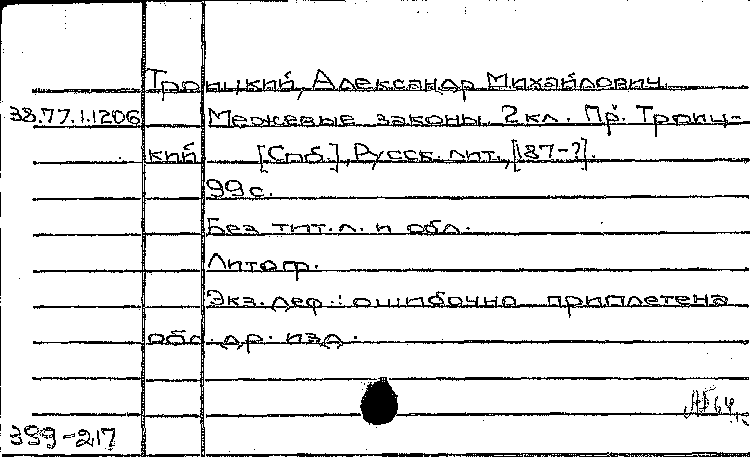 Троицкий, Александр Михайлович
38.77.1.1206 Межевые законы 2 кл. Пр. Троиц-
кий [Спб.], Русск. лит., [187-?].
99 с.
Без тит. л. и обл.
Литогр.
Экз. деф.: ошибочно приплетена
обл. др. изд.
399-217